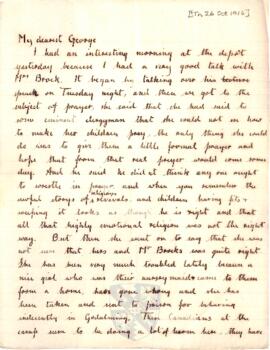 [Th, 26 Oct 1916]
My dearest George
I had an interesting morning at the depot
yesterday because I had a very good talk with
Mrs Brock. It began by talking over his lecture
speech on Tuesday night, and then we got to the
subject of prayer, she said that she had said to
some eminent clergyman that she could not in how
to make her children pray, the only thing she could
do was to give them a little formal prayer and
hope that from that real prayer would come some
day. And he said he did not think any one ought
to wrestle in prayer, and when you remember the
awful storys of religious revivals, and children having fits &
weeping it looks as though he is right and that
all that highly emotional religion was not the right
way. But then she went on to say that she was
not sure that hers and Mr Brocks was quite right
She has been very much troubled lately because a
nice girl who was their nursery maid & came to them
from a home, have gone wrong and she has
been taken and sent to prison for behaving
indecently in Godalming. Then Canadians at the
camp seem to be doing a lot of harm here. they have